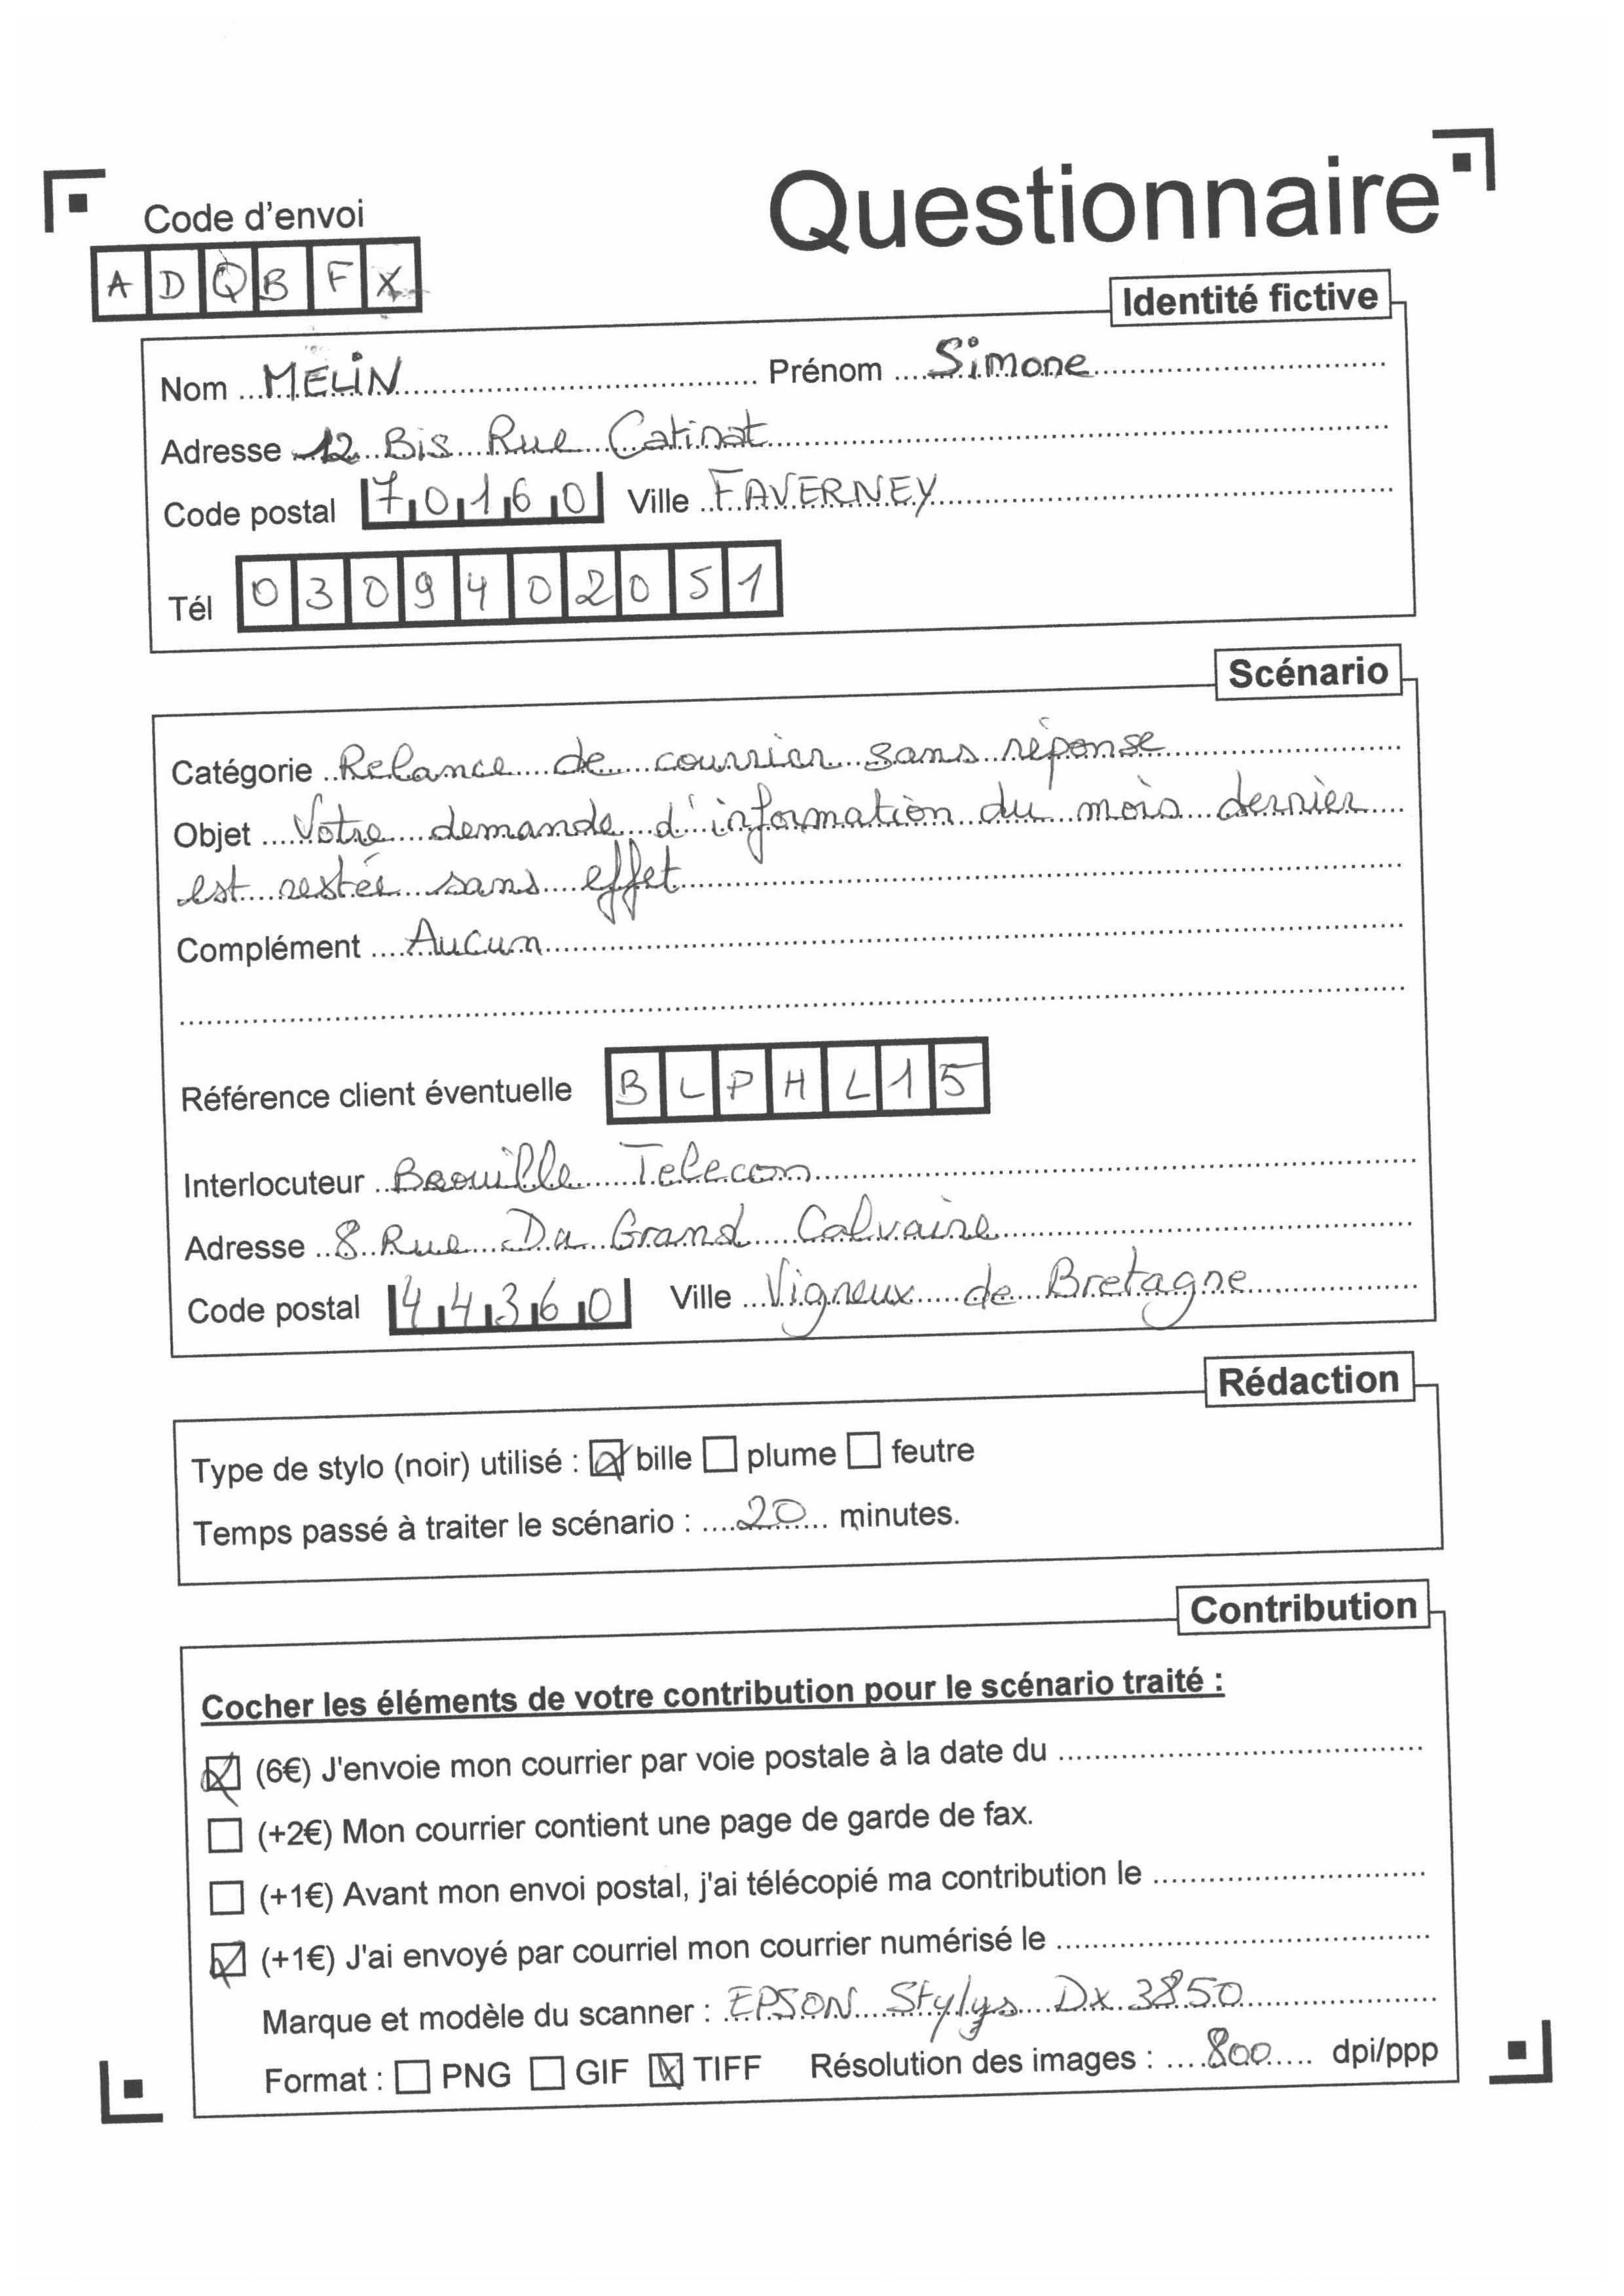 Questionnaire
Code d'envoi
A D Q B F X
Identité fictive
Nom MELIN Prénom Simone
Adresse 12 Bis Rue Catinat
Code postal 70160 Ville FAVERNEY
Tél 0309402051
Scénario
Catégorie Relance de courrier sans réponse
Objet Votre demande d'information du mois dernier
est restée sans effet
Complément Aucun
Référence client éventuelle BLPHL15
Interlocuteur Telecom
Adresse 8 Rue Du Grand Calvaire
Code postal 44360 Ville Vigneux de Bretagne
Rédaction
Type de stylo (noir) utilisé : bille plume feutre
Temps passé à traiter le scénario : 20 minutes.
Contribution
Cocher les éléments de votre contribution pour le scénario traité :
(6€) J'envoie mon courrier par voie postale à la date du
(+2€) Mon courrier contient une page de garde de fax.
(+1€) Avant mon envoi postal, j'ai télécopié ma contribution le
(+1€) J'ai envoyé par courriel mon courrier numérisé le
Marque et modèle du scanner : EPSON Stylys Dx 3850
Format : PNG GIF TIFF Résolution des images : 800 dpi/ppp